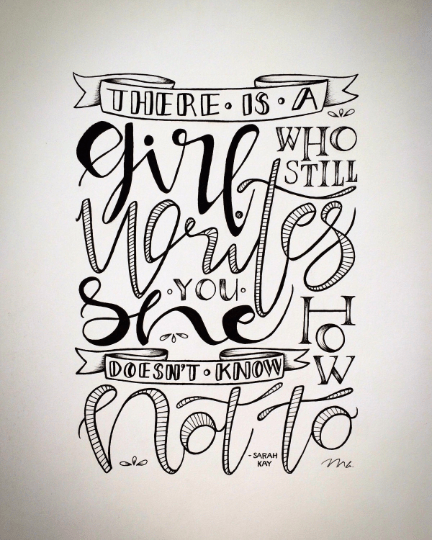 THERE · IS · A
girl WHO
STILL
writes
· YOU ·
She HOW
DOESN'T · KNOW
not to
- SARAH
KAY